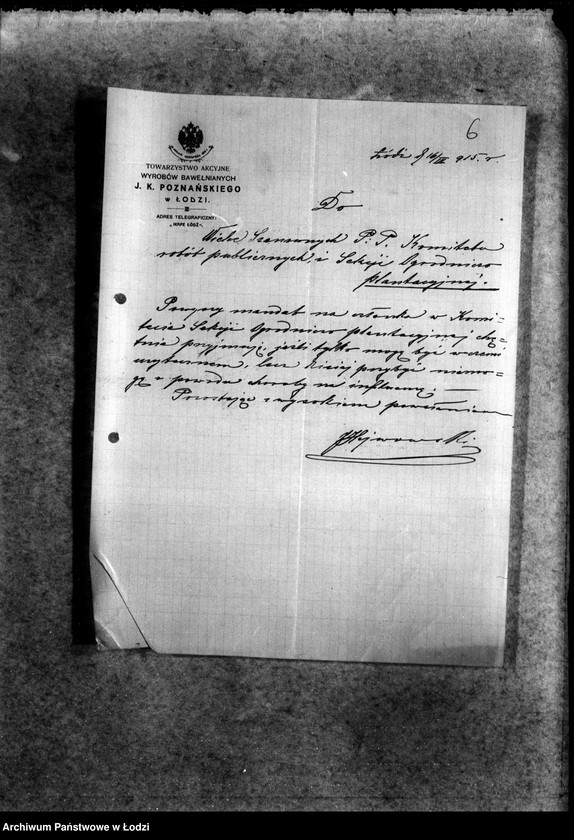 6
TOWARZYSTWO AKCYJNE
WYROBÓW BAWEŁNIANYCH
J. K. POZNAŃSKIEGO
w ŁODZI.
ADRES TELEGRAFICZNY:
Łódź d 16/III 915. r.
Do
Wielce Szanownych P. P. Komitetu
robót publicznych i Sekcji Ogrodniczo
plantacyjnej.
mandat na członka w Komi-
tecie Sekcji Ogrodniczo plantacyjnej chę-
tnie przyjmuję, jeśli tylko mogę być w czemś
użytecznem, lecz dzisiaj przybyć niemo-
gę z powodu choroby na influenzę. —
Pozostaję z wysokiem poważaniem
Archiwum Państwowe w Łodzi